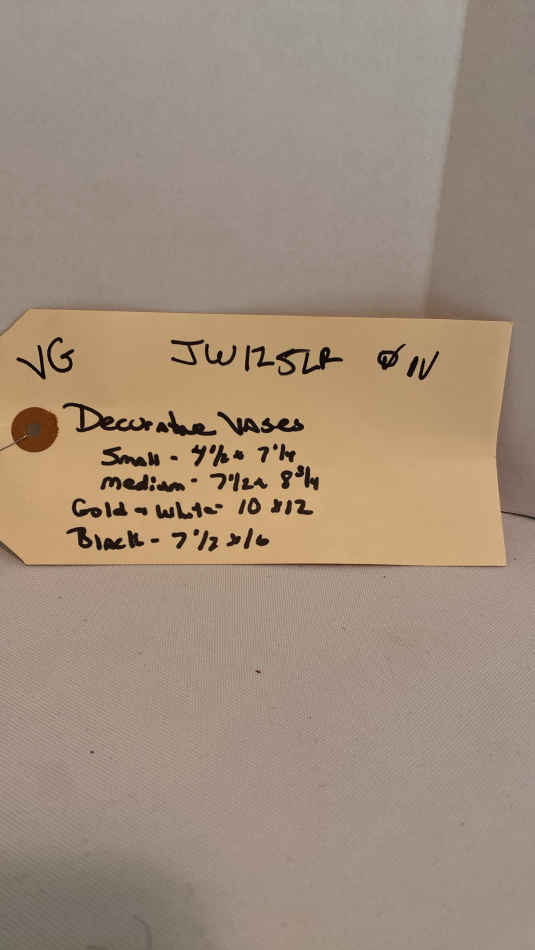 VG JW125LR Ø IV
Decorative Vases
Small - 4 1/2 x 7 1/4
medium - 7 1/2 x 8 3/4
Gold + White - 10 x 12
Black - 7 1/2 x 16